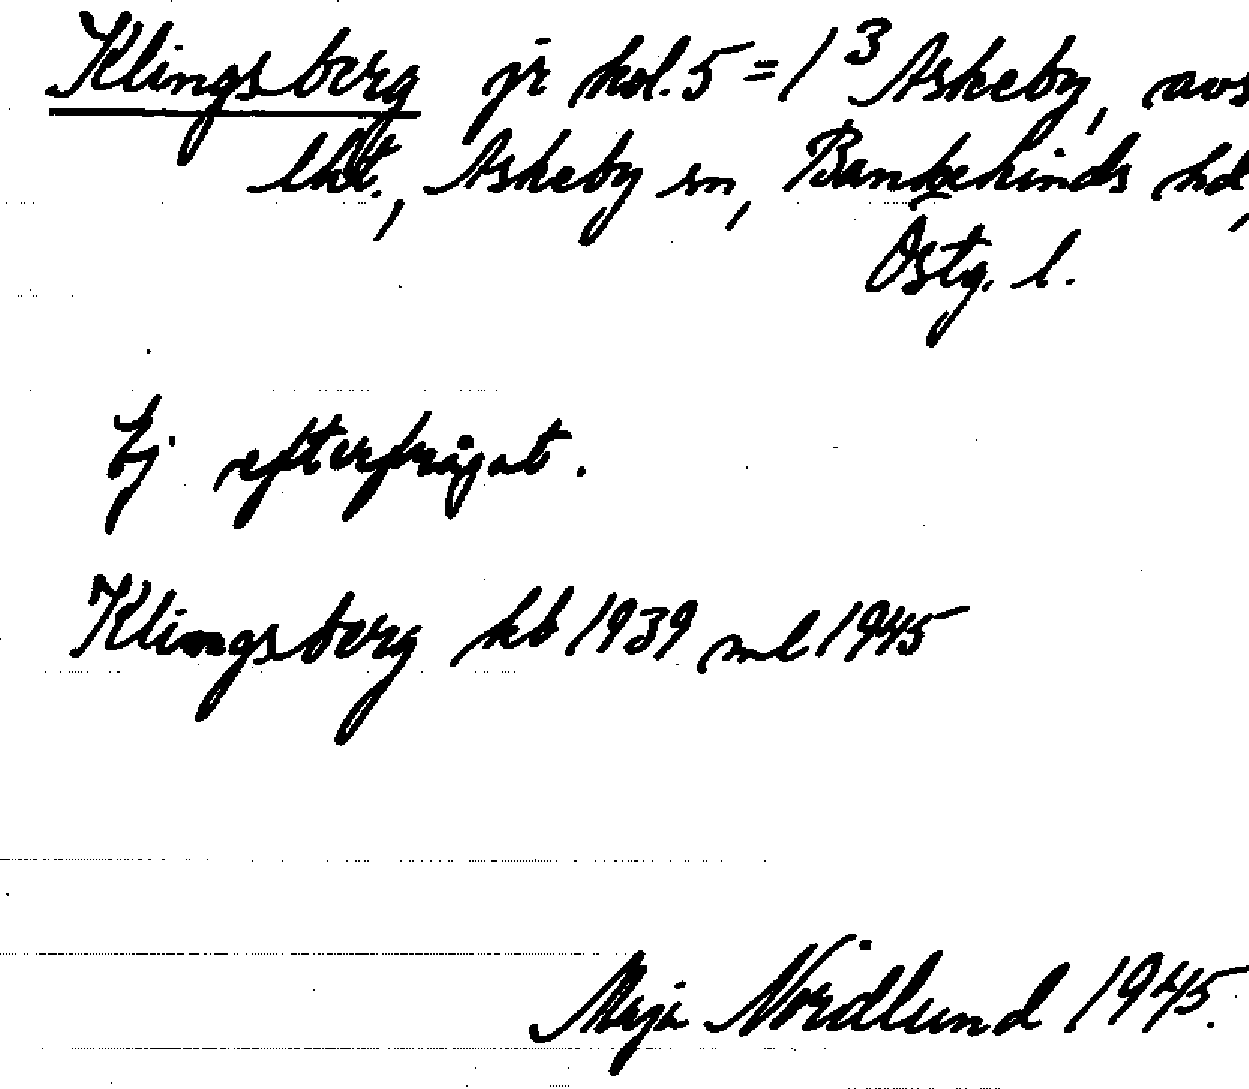 Klingsberg jr kol. 5 = 1³ Askeby, avs
lht., Askeby sn, Bankekinds hd,
Östg. l.
Ej efterfrågat.
Klingsberg kb 1939 ml 1945
Nordlund 1945.